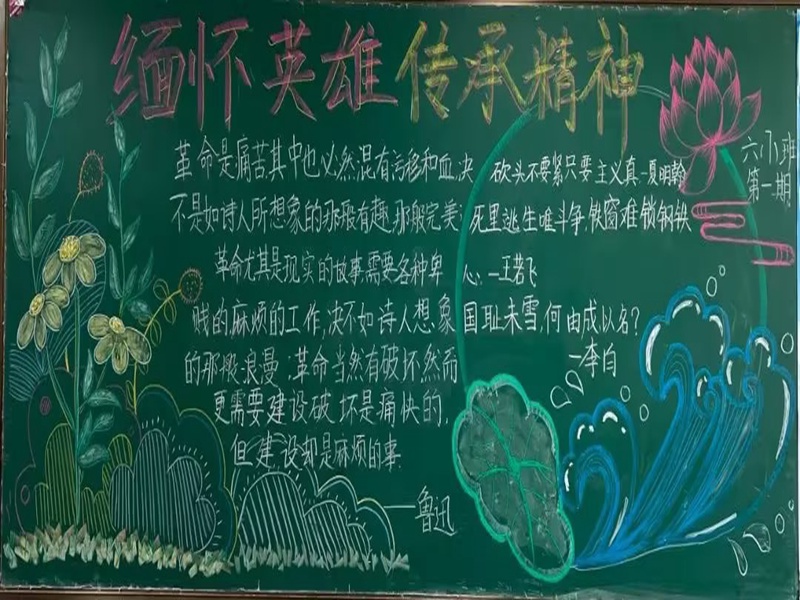 缅怀英雄传承精神
六小班
第一期
革命是痛苦其中也必然混有污秽和血,决
不是如诗人所想象的那般有趣,那般完美;
革命尤其是现实的故事,需要各种卑
贱的麻烦的工作,决不如诗人想象
的那般浪漫;革命当然有破坏然而
更需要建设破坏是痛快的,
但建设却是麻烦的事.
—鲁迅
砍头不要紧只要主义真—夏明翰
死里逃生唯斗争,铁窗难锁钢铁
心.—王若飞
国耻未雪,何由成以名?
—李白